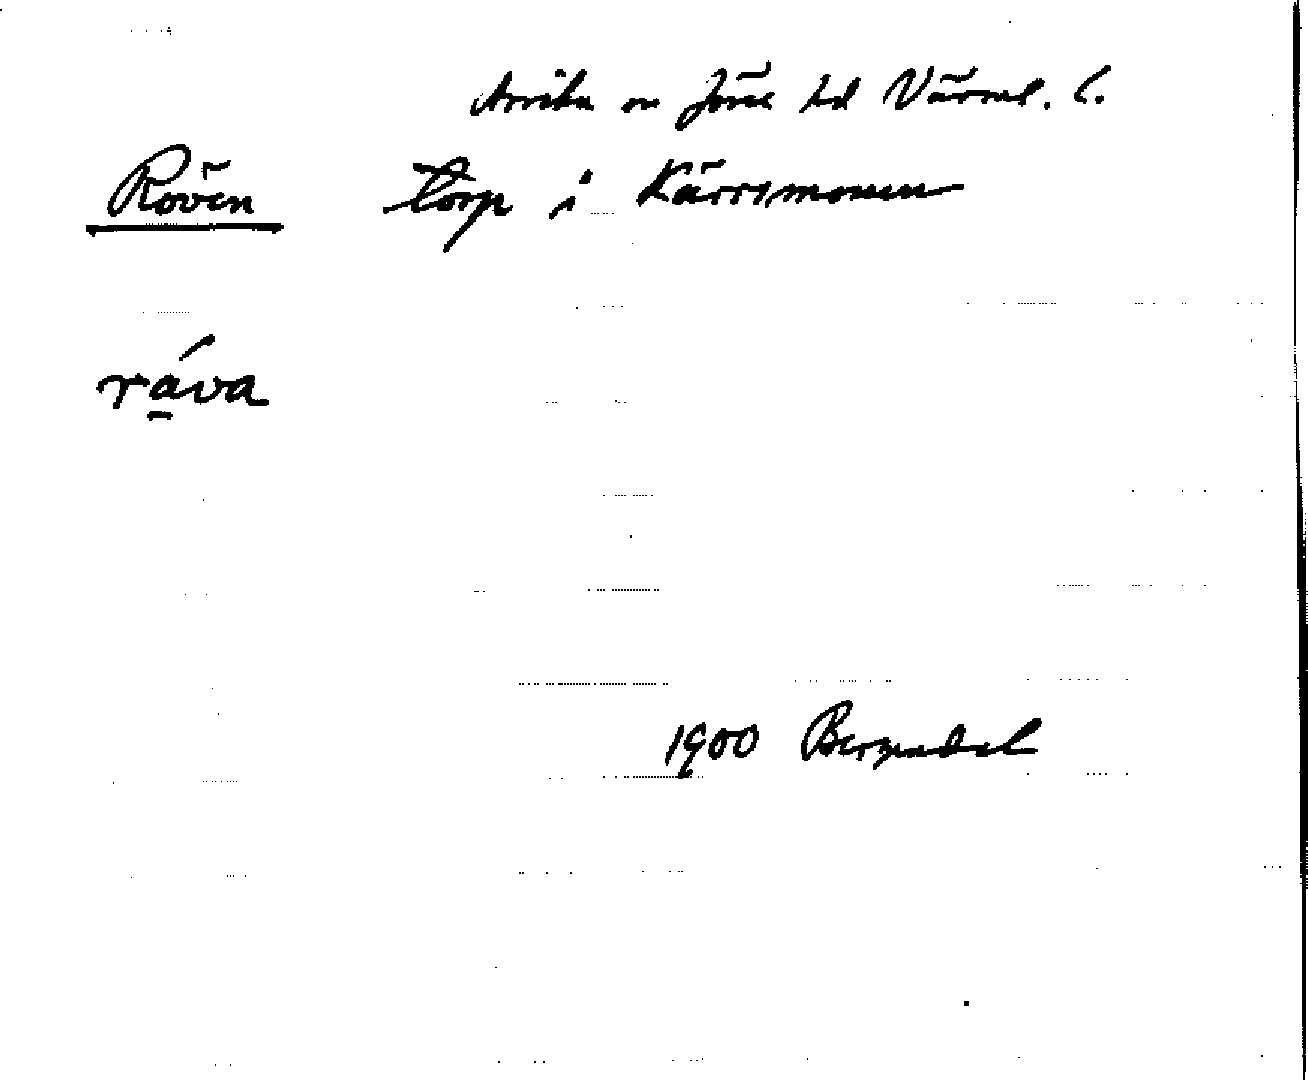 Arvika sn Jösse hd Värml. l.
Röven torp i Kärrsmomm
rá̱va
1900 Bergendal